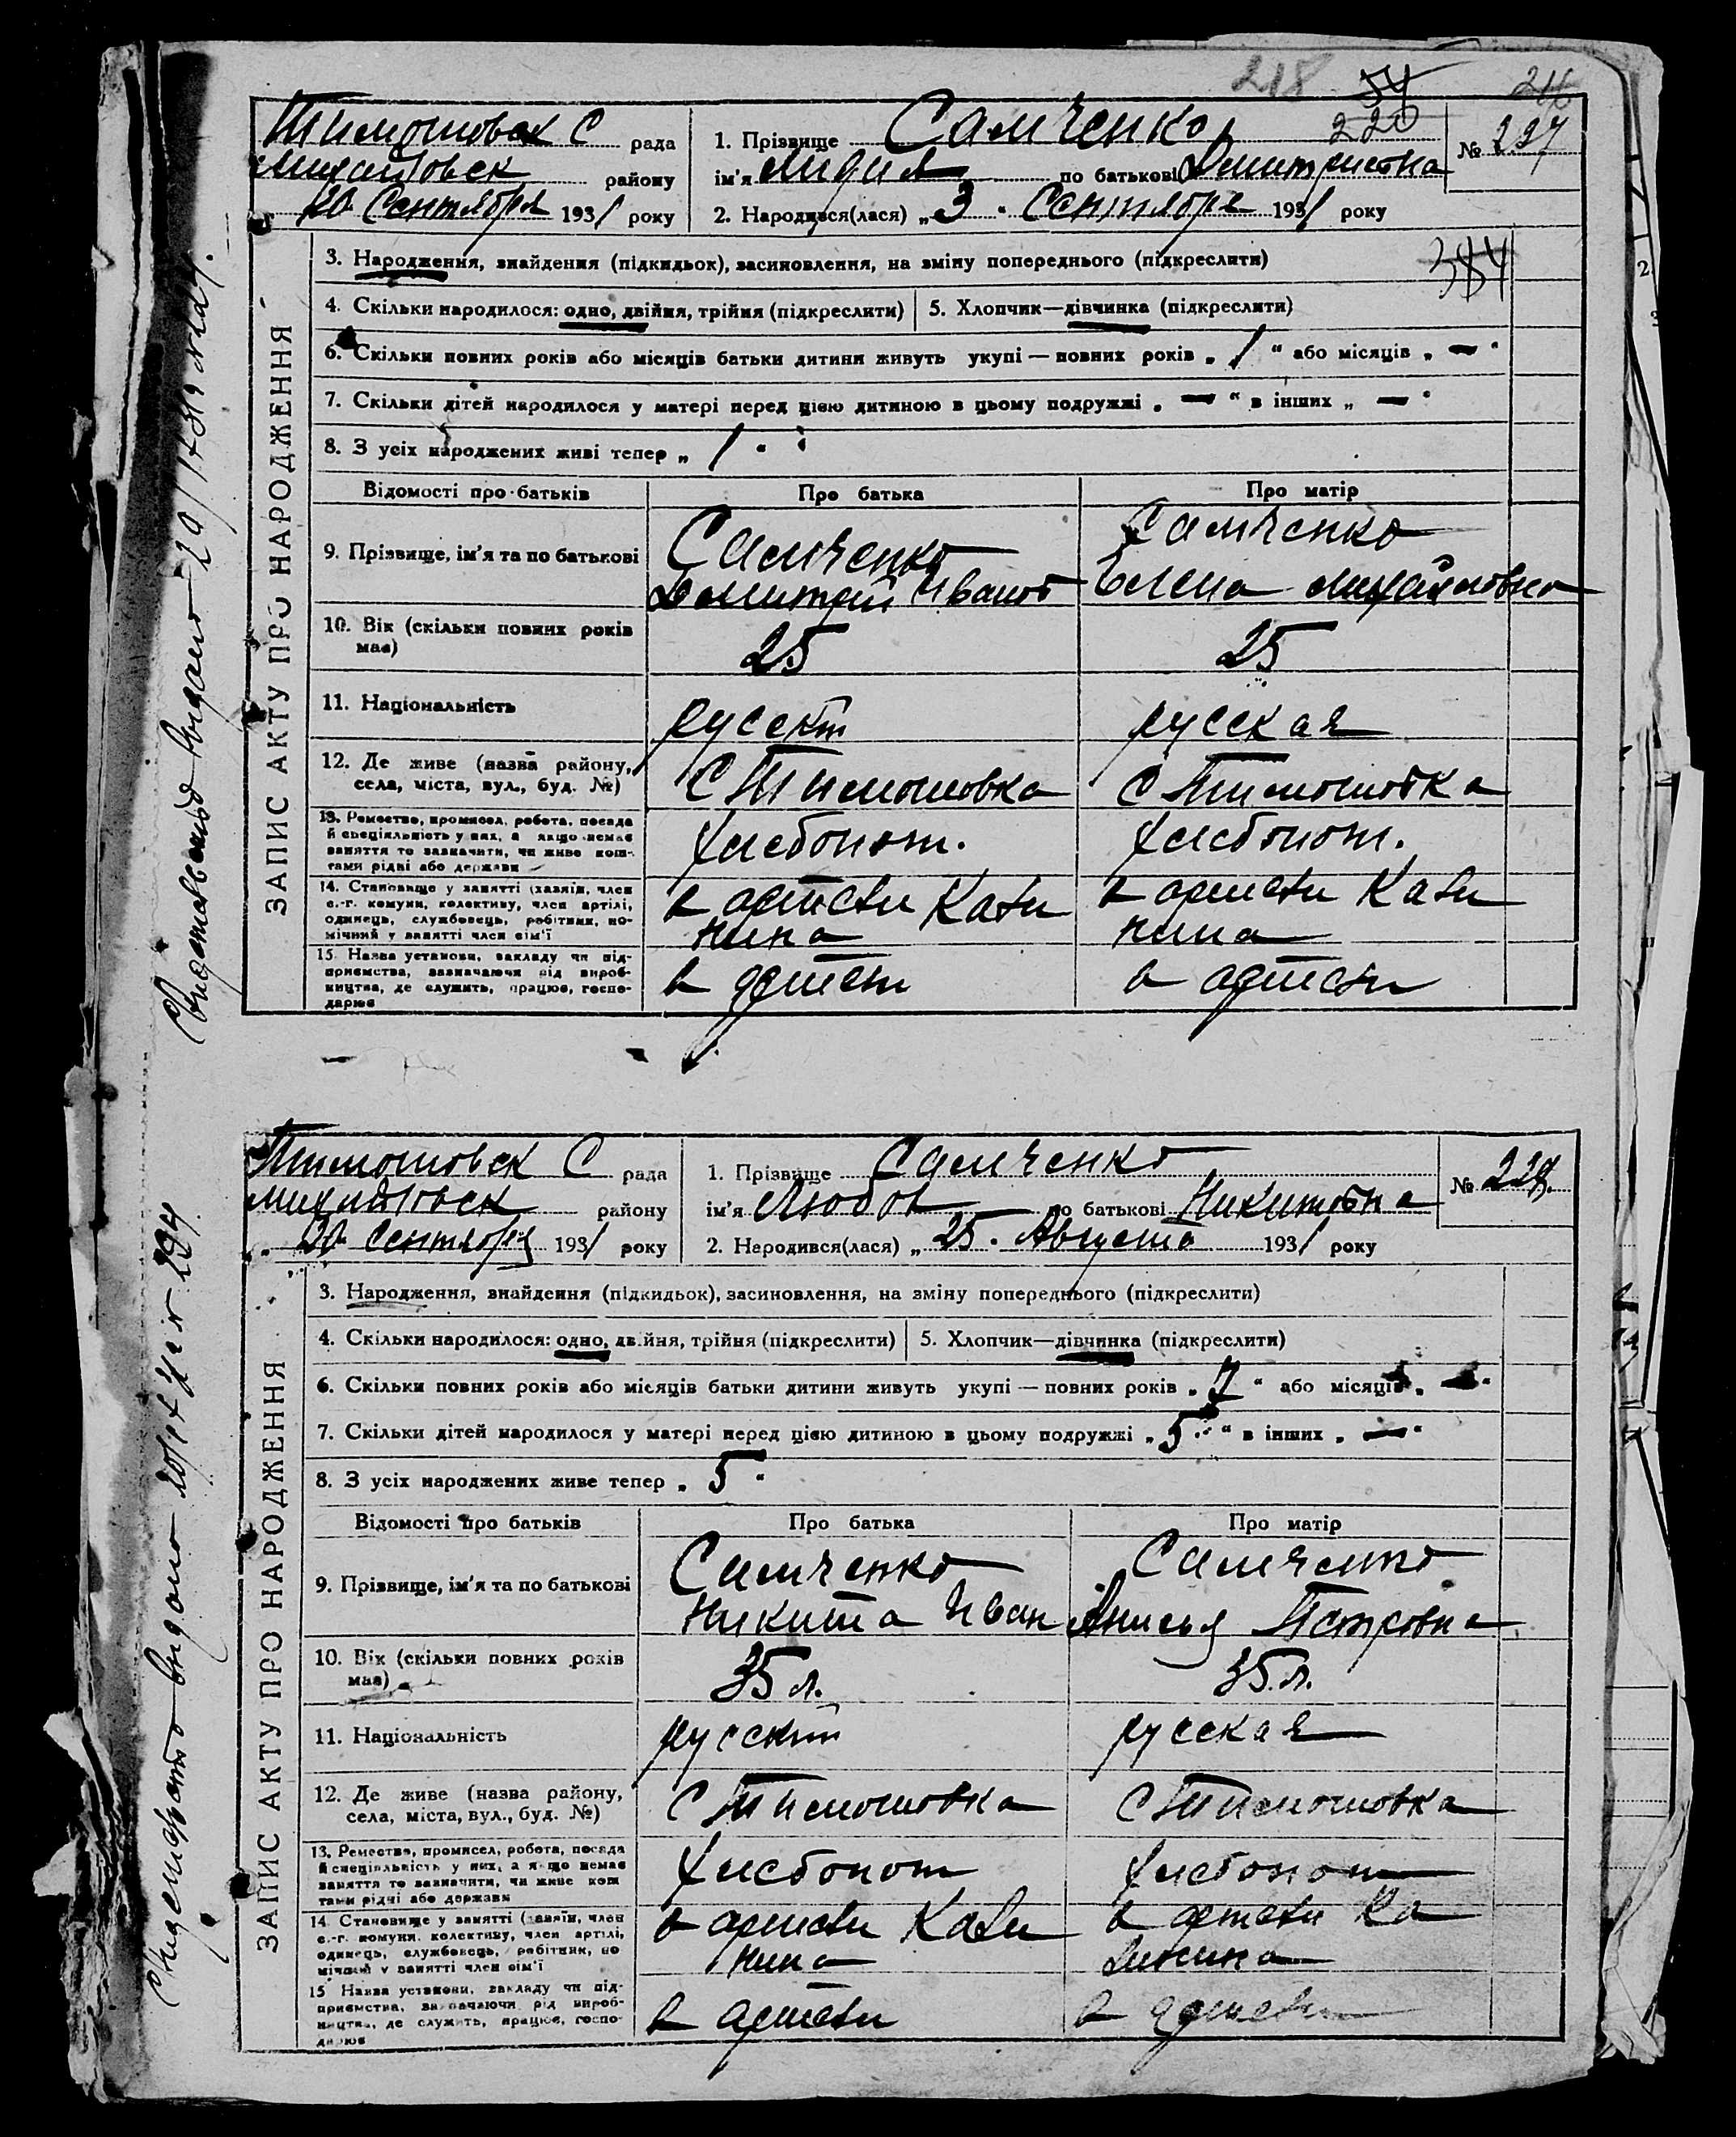 218 54 216
Тимошовск С рада
1. Прізвище Самченко 220
№ 227
Михайловск району
ім'я Лидия по батькові Дмитриевна
20 Сентября 1931 року
2. Народився(лася) „3" Сентября 1931 року
ЗАПИС АКТУ ПРО НАРОДЖЕННЯ
3. Народження, знайдення (підкидьок), засиновлення, на зміну попереднього (підкреслити)
384
4. Скільки народилося: одно, двійня, трійня (підкреслити)
5. Хлопчик—дівчинка (підкреслити)
6. Скільки повних років або місяців батьки дитини живуть укупі — повних років „ 1 " або місяців „ — "
7. Скільки дітей народилося у матері перед цією дитиною в цьому подружжі „ — " в інших „ — "
8. З усіх народжених живі тепер „ 1 "
Відомості про батьків
Про батька
Про матір
9. Прізвище, ім'я та по батькові
Самченко
Дмитрий Иванов
Самченко
Елена Михайловна
10. Вік (скільки повних років
має)
25
25
11. Національність
русский
русская
12. Де живе (назва району,
села, міста, вул., буд. №)
С Тимошовка
С Тимошовка
13. Ремество, промисел, робота, посада
й спеціяльність у них, а якщо немає
заняття то зазначити, чи живе кош-
тами рідні або держави
Хлебопаш.
Хлебопаш.
14. Становище у занятті (хазяїн, член
с.-г. комуни, колективу, член артілі,
одинець, службовець, робітник, по-
мічний у занятті член сім'ї
в артели Кали
нина
в артели Кали
нина
15. Назва установи, закладу чи під-
приємства, зазначаючи рід вироб-
ництва, де служить, працює, госпо-
дарює
в артели
в артели
Тимошовск С рада
1. Прізвище Самченко
№ 228.
Михайловск району
ім'я Любов по батькові Никитовна
20 Сентября 1931 року
2. Народився(лася) „ 25 " Августа 1931 року
ЗАПИС АКТУ ПРО НАРОДЖЕННЯ
3. Народження, знайдення (підкидьок), засиновлення, на зміну попереднього (підкреслити)
4. Скільки народилося: одно, двійня, трійня (підкреслити)
5. Хлопчик—дівчинка (підкреслити)
6. Скільки повних років або місяців батьки дитини живуть укупі — повних років „ 7 " або місяців „ — "
7. Скільки дітей народилося у матері перед цією дитиною в цьому подружжі „ 5 " в інших „ — "
8. З усіх народжених живе тепер „ 5 "
Відомості про батьків
Про батька
Про матір
9. Прізвище, ім'я та по батькові
Самченко
Никита Иван
Самченко
Анисья Петровна
10. Вік (скільки повних років
має)
35 л.
35 л.
11. Національність
русский
русская
12. Де живе (назва району,
села, міста, вул., буд. №)
С Тимошовка
С Тимошовка
13. Ремество, промисел, робота, посада
й спеціяльність у них, а якщо немає
заняття то зазначити, чи живе кош
тами рідні або держави
Хлебопаш
Хлебопаш
14. Становище у занятті (хазяїн, член
с.-г. комуни, колективу, член артілі,
одинець, службовець, робітник, по
мічний у занятті член сім'ї
в артели Кали
нина
в артели Ка
линина
15. Назва установи, закладу чи під-
приємства, зазначаючи рід вироб-
ництва, де служить, працює, госпо-
дарює
в артели
в артели